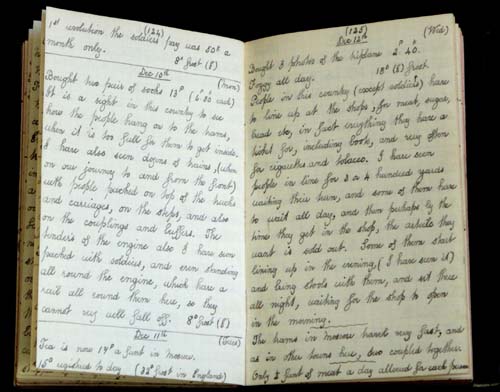 (124)
1st revolution the soldiers pay was 50k a
month only. 8° frost (F)
Dec 10th (Mon)
Bought two pair of socks 13R (6.50 each)
It is a sight in this country to see
how the people hang on to the trams,
when it is too full for them to get inside,
I have also seen dozens of trains, (when
on our journey to and from the front)
with people packed on top of the trucks
and carriages, on the steps, and also
on the couplings and buffers. The
tenders of the engine also I have seen
packed with soldiers, and even standing
all round the engine, which have a
rail all round them here, so they
cannot very well fall off. 8° frost (F)
Dec 11th (Tues)
Tea is now 14R a funt in Moscow.
15° registered to day (25° frost in England)
(125)
Dec 12th (Wed)
Bought 3 photos of the biplane 2R 40.
Foggy all day. 18° (F) frost.
People in this country (except soldiers) have
to line up at the shops, for meat, sugar,
bread etc, in fact everything they have a
ticket for, including boots, and very often
for cigarettes and tobacco. I have seen
people in line for 3 or 4 hundred yards
waiting their turn, and some of them have
to wait all day, and then perhaps by the
time they get in the shop, the article they
want is sold out. Some of them start
lining up in the evening, (I have seen it)
and bring stools with them, and sit there
all night, waiting for the shop to open
in the morning.
The trams in Moscow travel very fast, and
as in other towns here, two coupled together.
Only funt of meat a day allowed for each person